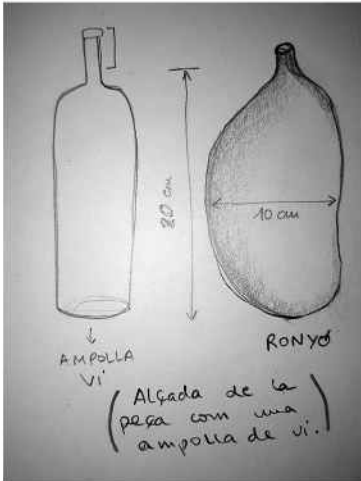 20 cm
10 cm
AMPOLLA
VÍ
RONYÓ
(Alçada de la
peça com una
ampolla de vi.)